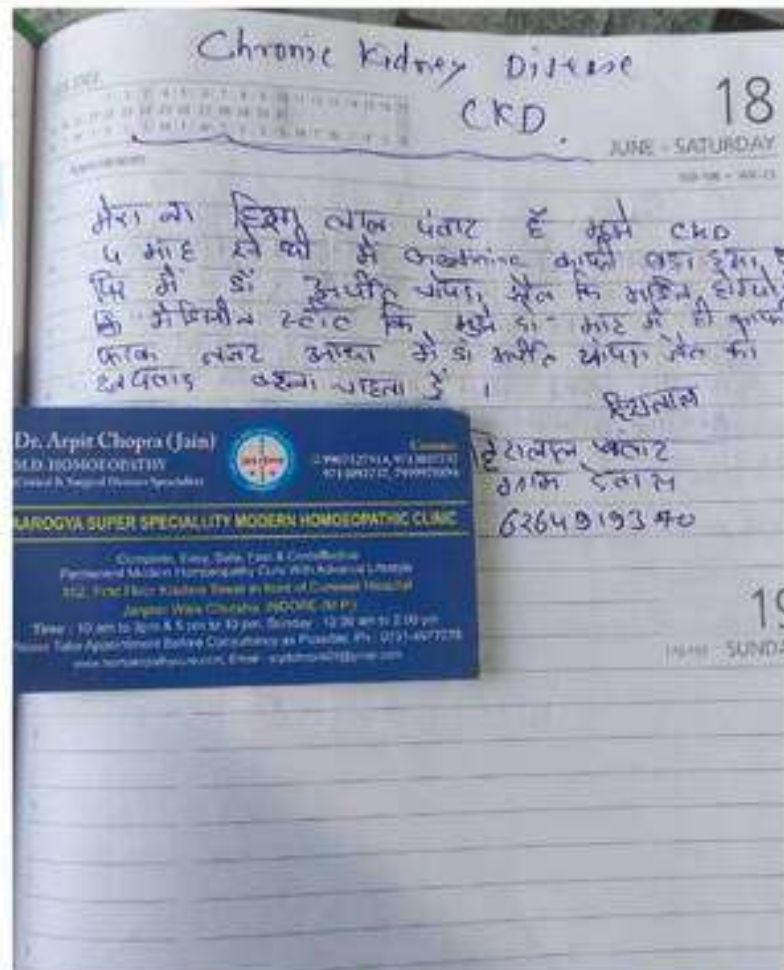 Chronic Kidney Disease
CKD.
18
JUNE - SATURDAY
मेरा ना हिरा लाल पंवार है मुझे CKD
4 माह से थी मैं Creatinine काफी बड़ा हुआ
फिर मैं डॉ अर्पित चोपड़ा जैन कि मार्डन होम्यो
कि मेडिसीन स्टार्ट कि मुझे माह में ही काफी
फरक नजर आया मैं डॉ अर्पित चोपड़ा जैन को
धन्यवाद कहना चाहता हूँ ।
हिरालाल
हिरालाल पवार
ग्राम देवास
6264919370
Dr. Arpit Chopra (Jain)
M.D. HOMOEOPATHY
Critical & Surgical Disease Specialist
AAROGYA SUPER SPECIALLITY MODERN HOMOEOPATHIC CLINIC
Complete, Easy, Safe, Fast & Costeffective
Permanent Modern Homoeopathy Cure With Advanced Lifestyle
102, First Floor Krishna Tower in front of Curewell Hospital
Janjeer Wala Churaha, INDORE (M.P.)
Time : 10 am to 3pm & 5 pm to 10 pm, Sunday : 10:30 am to 2:00 pm
Please Take Appointment Before Consultancy as Possible. Ph.: 0731-4977076
19
SUNDAY